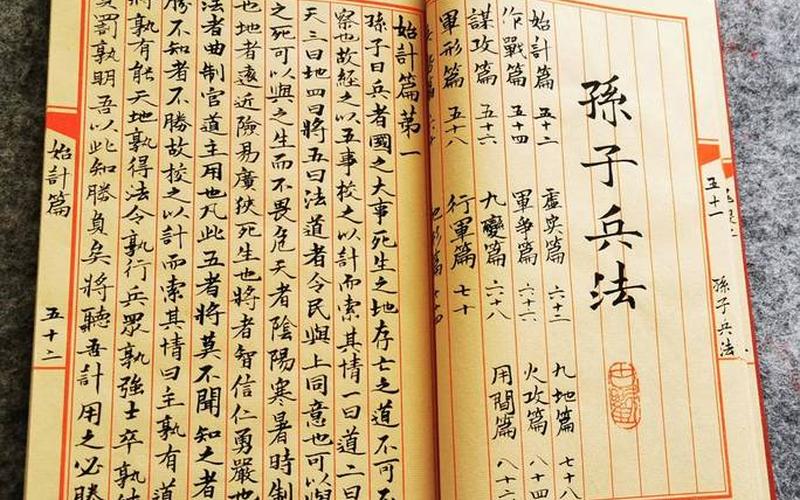 五十一
孫子兵法
孫子兵法
始計篇 五十二 虛實篇 九地篇 七十八
作戰篇 五十四 軍爭篇 六十六 火攻篇 八十四
謀攻篇 五十六 九變篇 六十八 用間篇
軍形篇 五十八 行軍篇 七十
始計篇第一
孫子曰兵者國之大事死生之地存亡之道不可不
察也故經之以五事校之以計而索其情一曰道二曰
天三曰地四曰將五曰法道者令民與上同意也可以與
之死可以與之生而不畏危天者陰陽寒暑時制
也地者遠近險易廣狹死生也將者智信仁勇嚴也
法者曲制官道主用也凡此五者將莫不聞知之者
勝不知者不勝故校之以計而索其情曰主孰有道
將孰有能天地孰得法令孰行兵眾孰強士卒孰
罰孰明吾以此知勝負矣將聽吾計用之必勝
始計篇 五十二